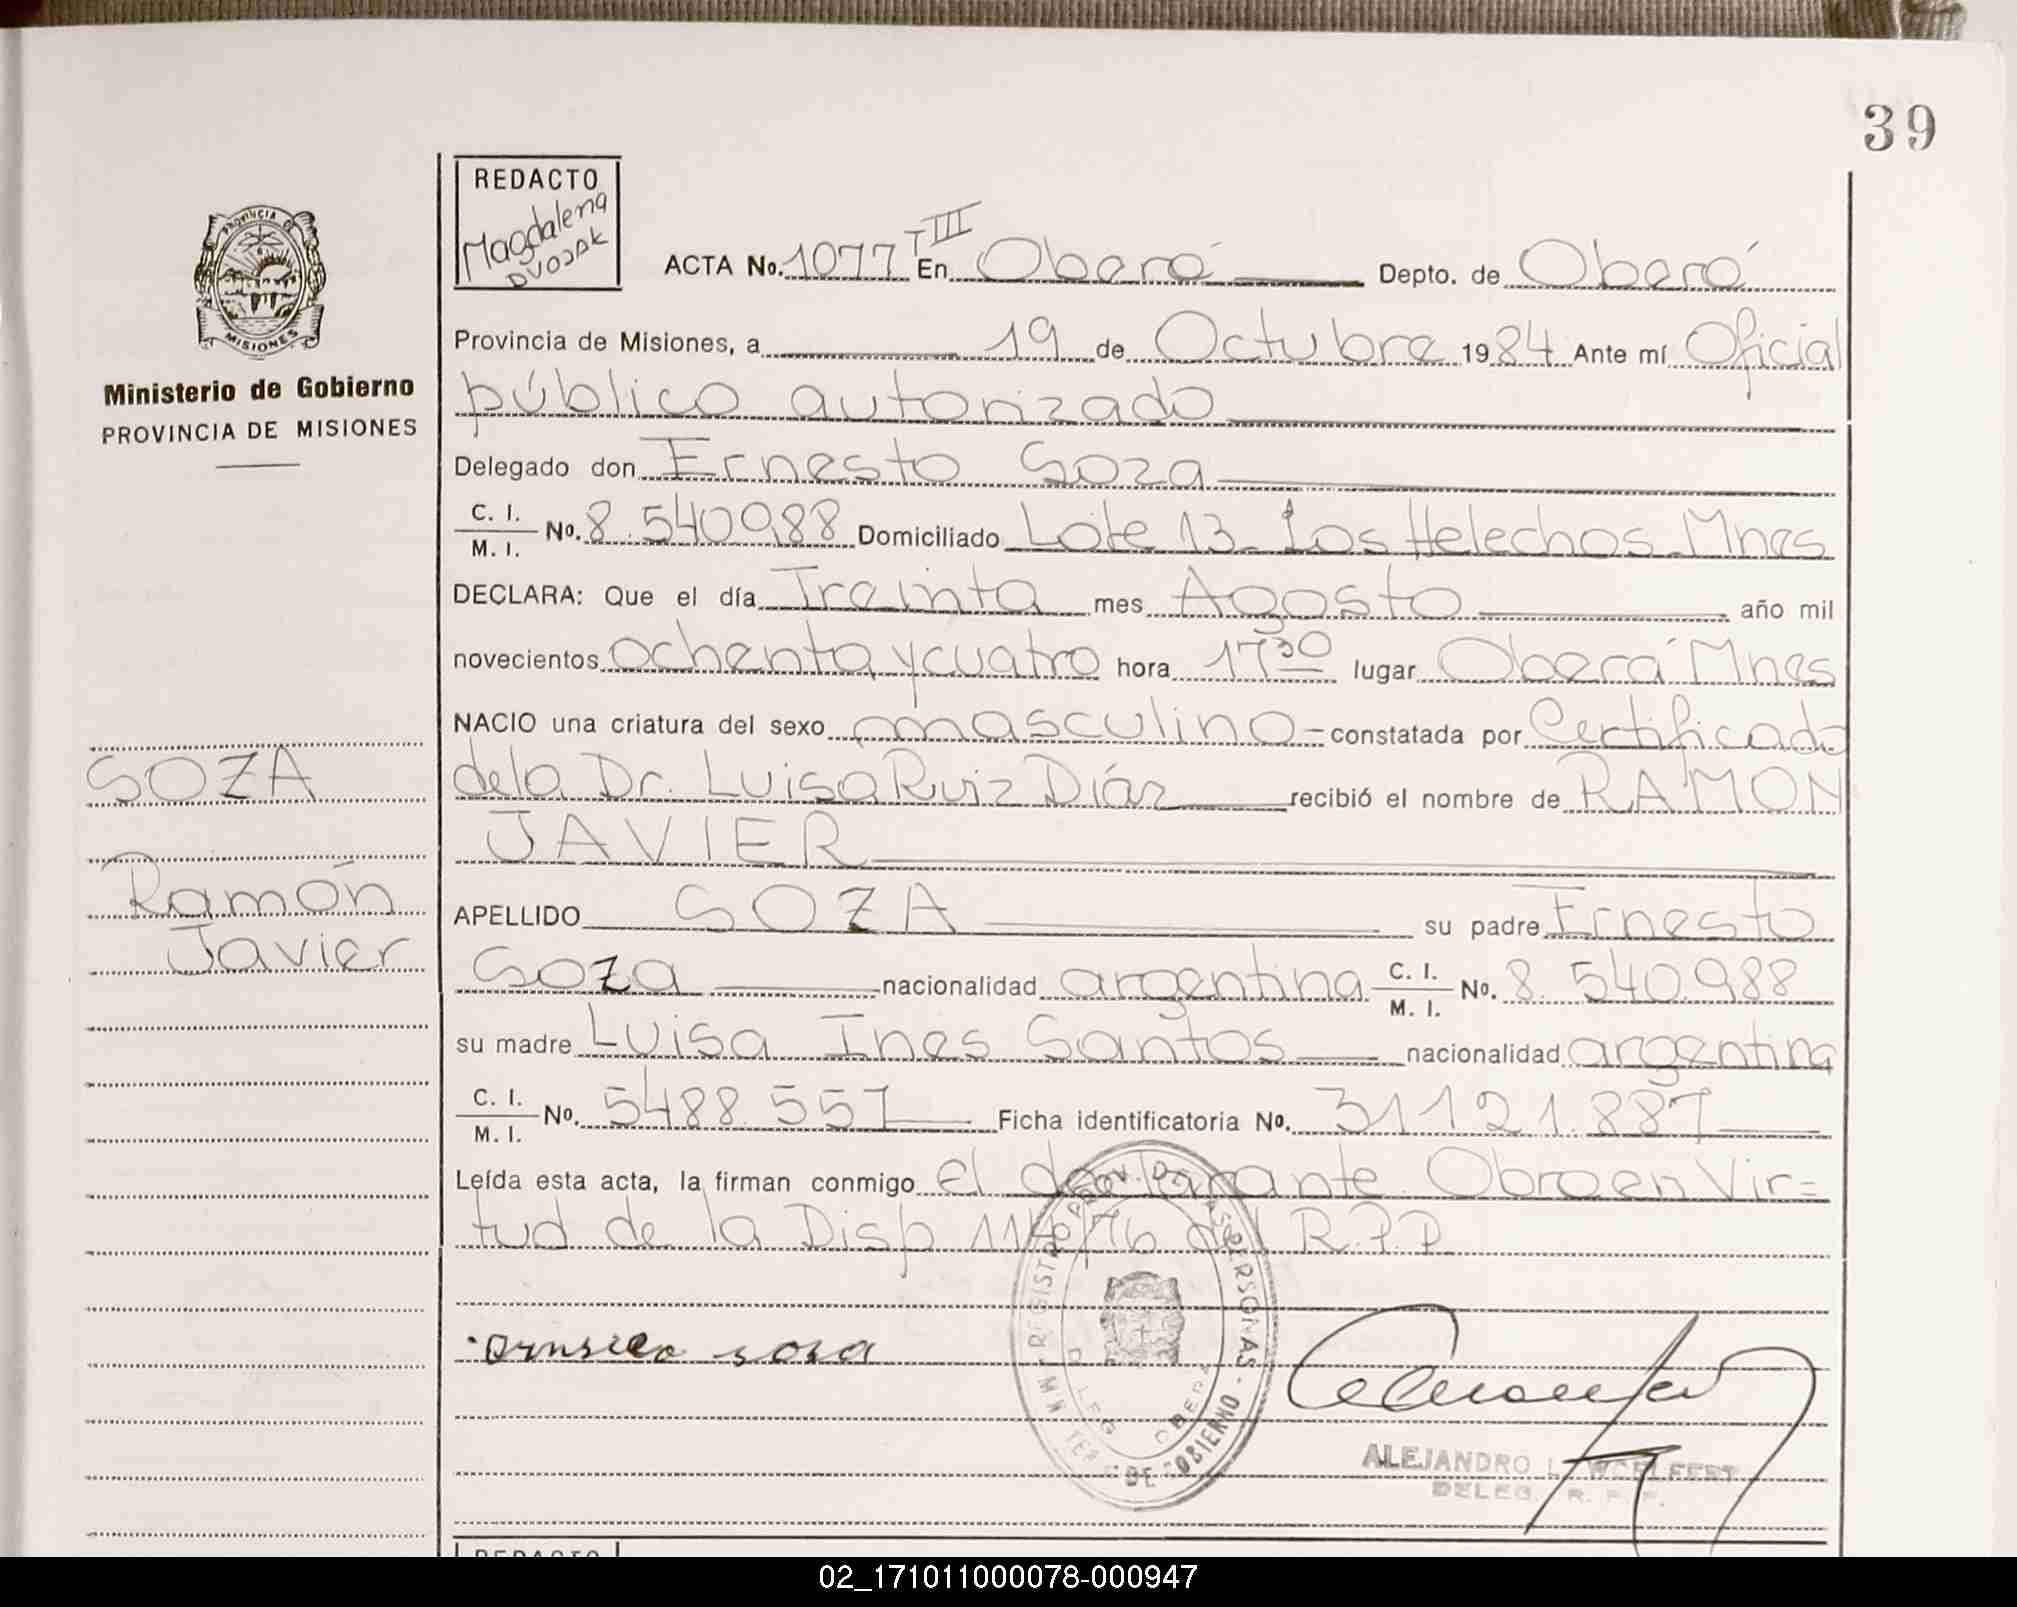 39
REDACTO
Magdalena
DVOJAK
PROVINCIA DE
MISIONES
Ministerio de Gobierno
PROVINCIA DE MISIONES
ACTA No. 1077 TIII En Oberá Depto. de Oberá
Provincia de Misiones, a 19 de Octubre 1984 Ante mí Oficial
público autorizado
Delegado don Ernesto Soza
C. I.
M. I. No. 8.540988 Domiciliado Lote 13 Los Helechos Mnes
DECLARA: Que el día Treinta mes Agosto año mil
novecientos ochenta y cuatro hora 17 30 lugar Oberá Mnes
NACIO una criatura del sexo masculino - constatada por Certificado
SOZA
de la Dr. Luisa Ruiz Diáz recibió el nombre de RAMON
JAVIER
Ramón
Javier
APELLIDO SOZA su padre Ernesto
Soza nacionalidad argentina C. I. M. I. No. 8.540.988
su madre Luisa Ines Santos nacionalidad argentina
C. I.
M. I. No. 5488.557 Ficha identificatoria No. 31121.887
Leída esta acta, la firman conmigo el declarante Obro en Vir=
tud de la Disp 1140/76 del R.P.P
REGISTRO PROV. DE LAS PERSONAS - MINISTERIO DE GOBIERNO
DELEG. OBERA
soza
ALEJANDRO L. WOELFERT
DELEG. R. P. P.
REDACTO
02_171011000078-000947